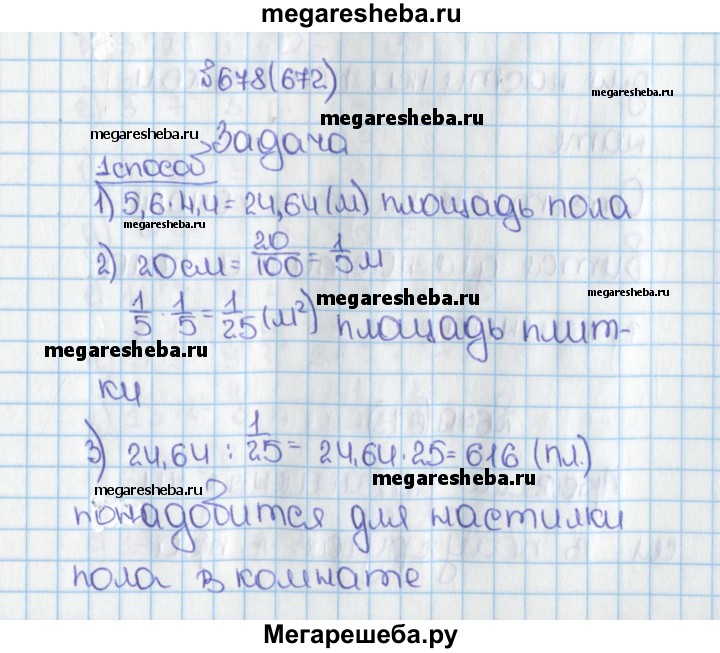 megaresheba.ru
№678(672)
megaresheba.ru
megaresheba.ru
megaresheba.ru
Задача
1способ
1) 5,6·4,4=24,64(м) площадь пола
megaresheba.ru
2) 20см=20/100=1/5м
1/5·1/5=1/25(м²) площадь плит-
megaresheba.ru
megaresheba.ru
megaresheba.ru
ки
3) 24,64:1/25=24,64·25=616 (пл.)
megaresheba.ru
megaresheba.ru
понадобится для настилки
пола в комнате
Мегарешеба.ру